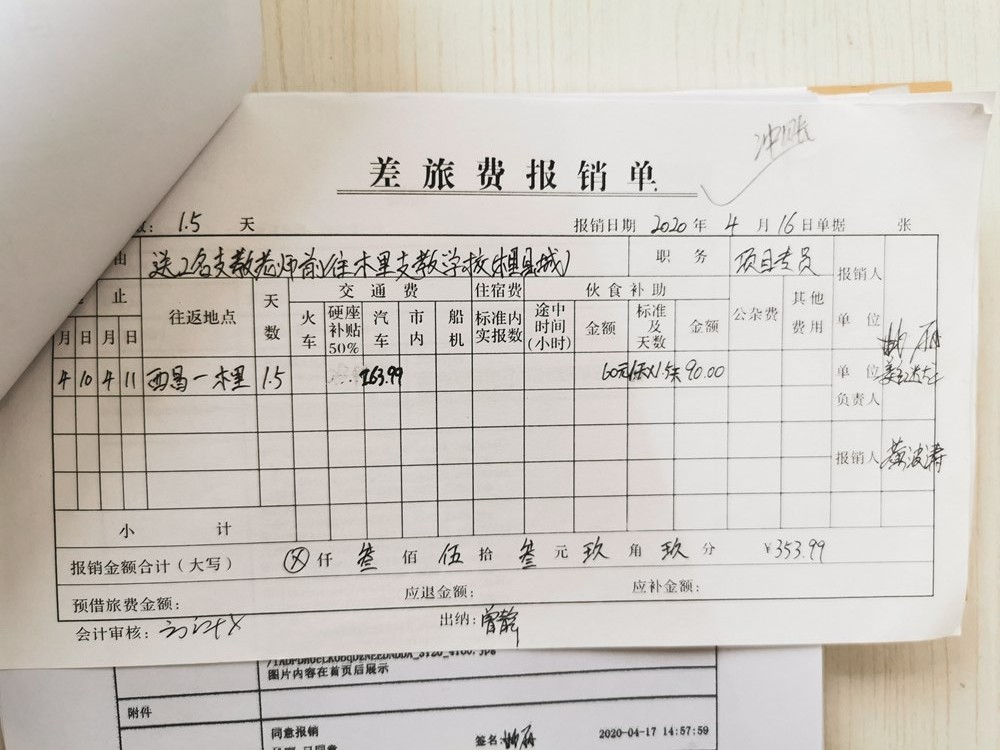 冲账
差旅费报销单
数: 1.5 天 报销日期 2020年 4月 16日 单据 张
由 送2名支教老师前往木里支教学校(木里县城) 职务 项目专员 报销人
止 往返地点 天数 交通费 住宿费 伙食补助 公杂费 其他费用 单位
月 日 月 日 火车 硬座补贴50% 汽车 市内 船机 标准内实报数 途中时间(小时) 金额 标准及天数 金额
4 10 4 11 西昌—木里 1.5 263.99 60元/天×1.5天 90.00 单位
负责人
报销人 黄波涛
小计
报销金额合计(大写) ⊗仟 叁佰 伍拾 叁元 玖角 玖分 ¥353.99
预借旅费金额: 应退金额: 应补金额:
会计审核: 出纳: 曾静
图片内容在首页后展示
附件
同意报销
签名: 2020-04-17 14:57:59